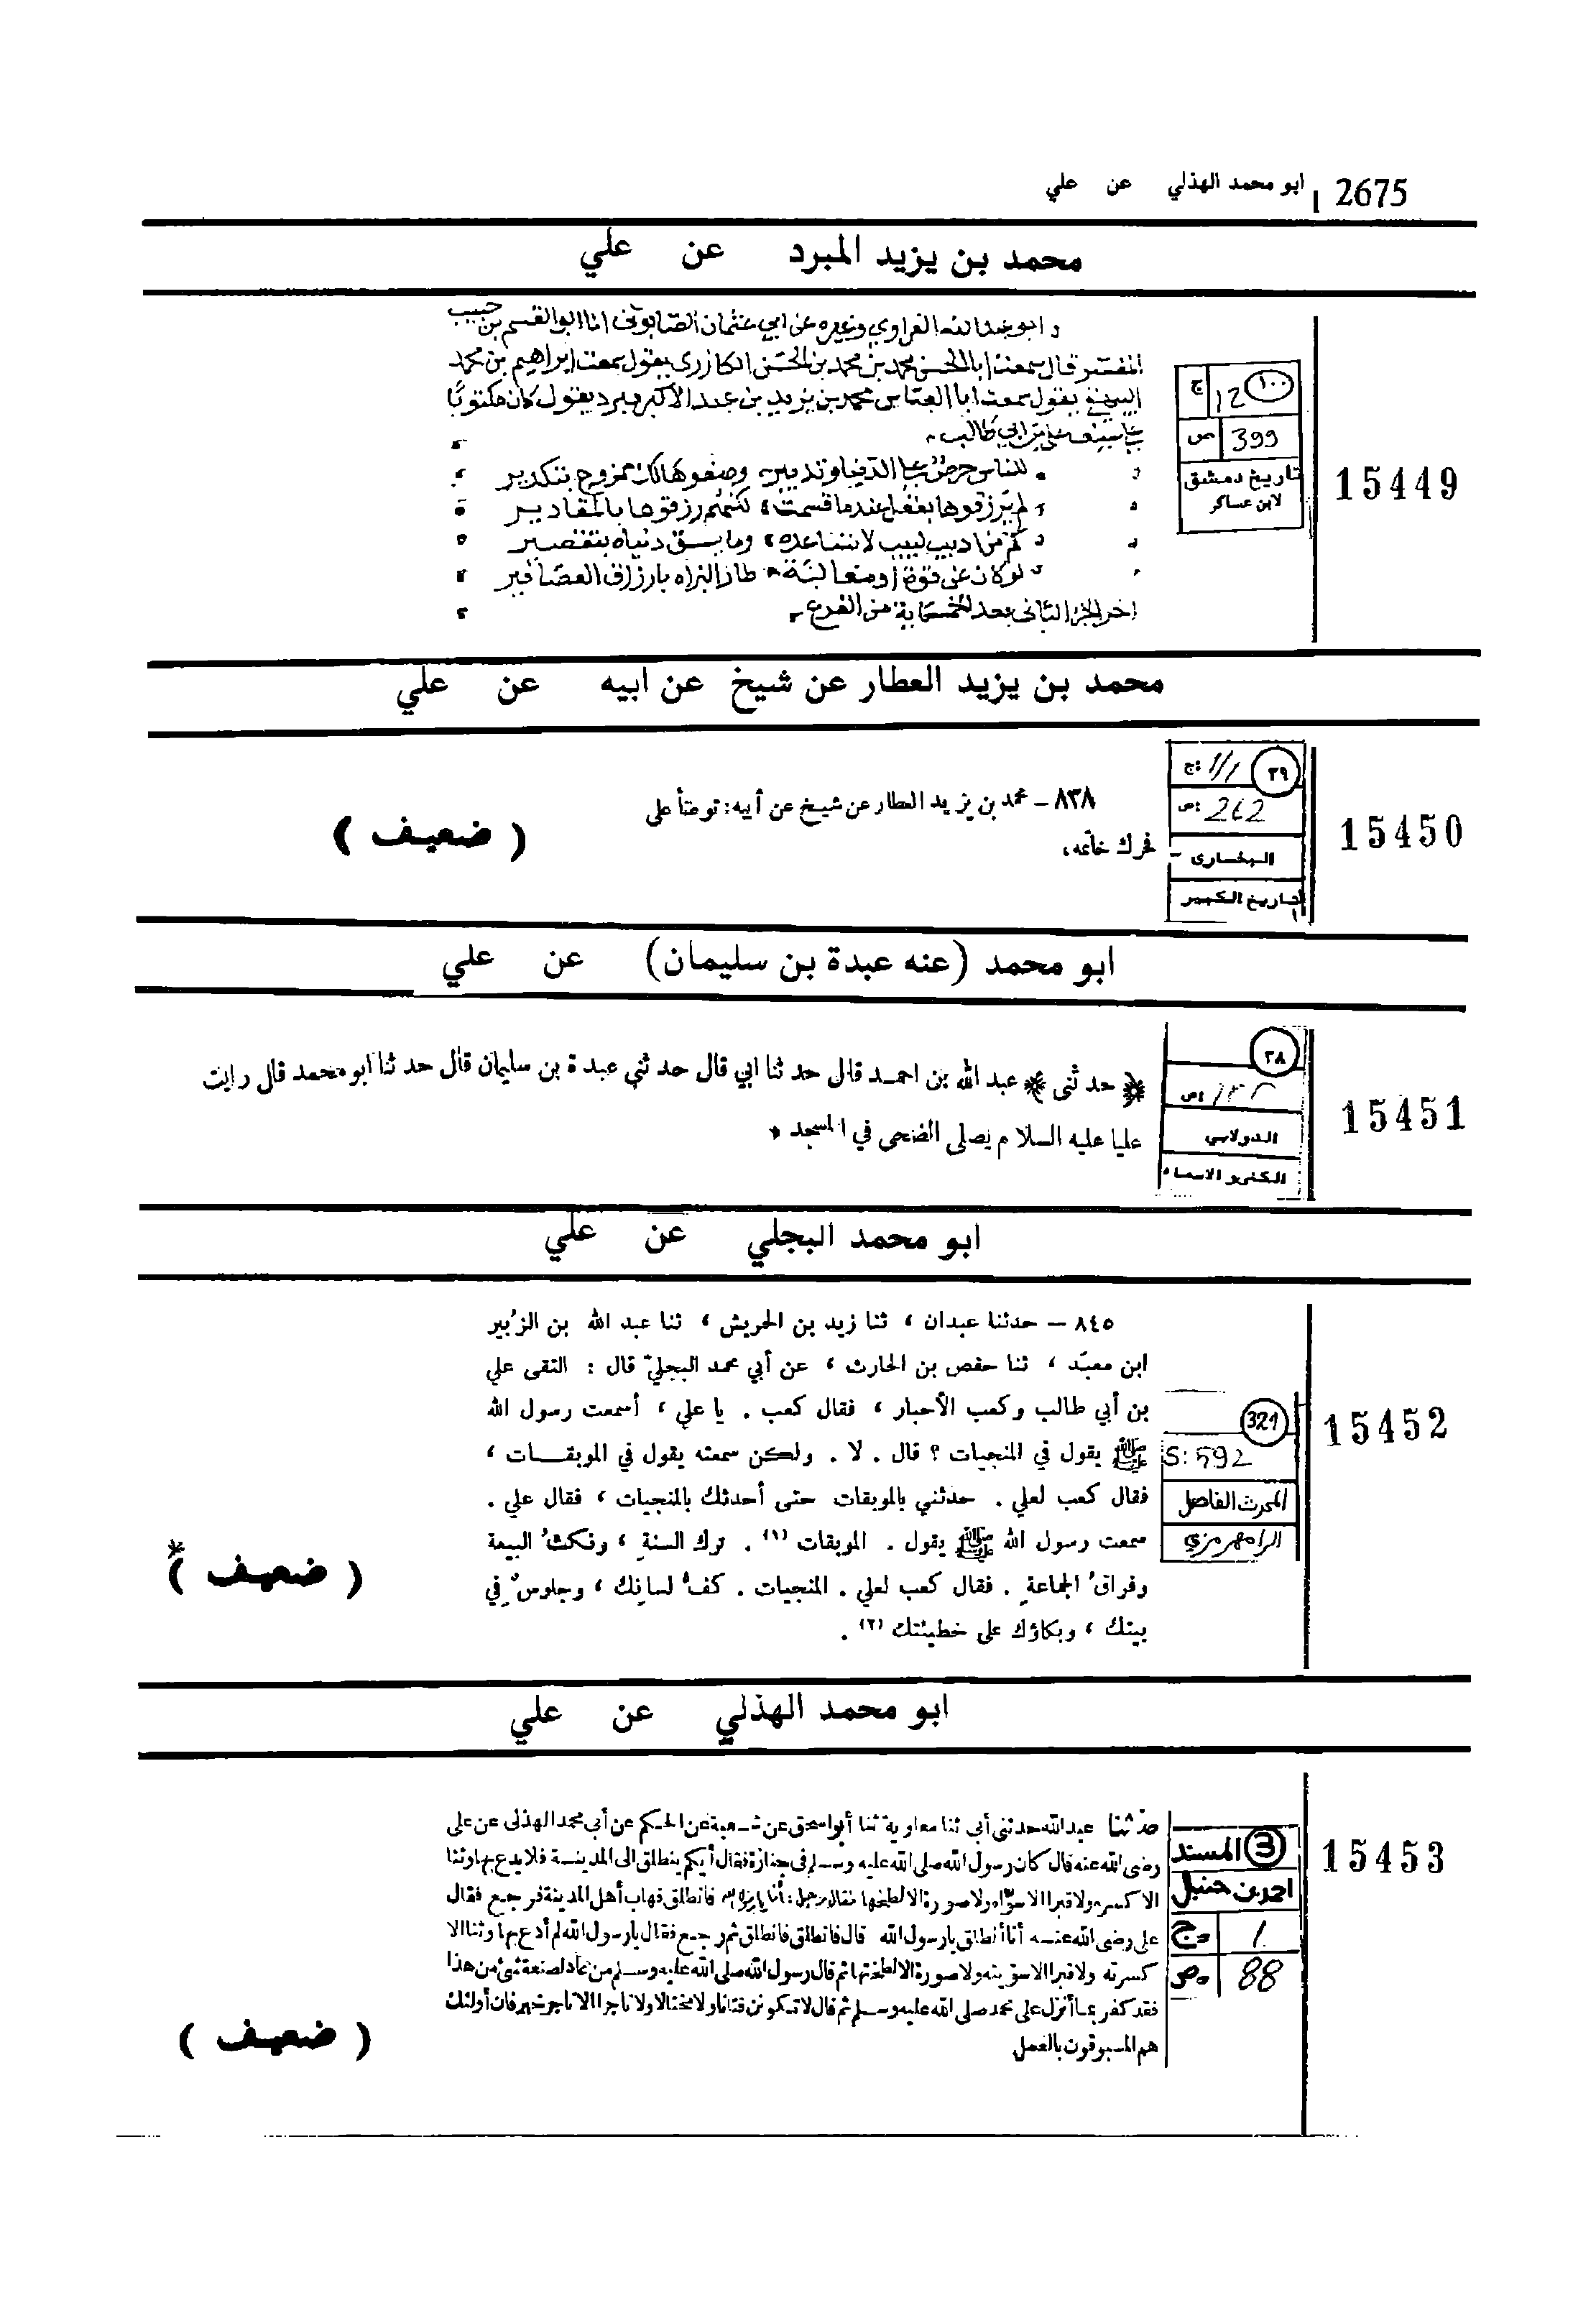 2675 ابو محمد الهذلي عن علي
محمد بن يزيد المبرد عن علي
15449
١٠٠ 12 ج
399 ص
تاريخ دمشق
لابن عساكر
ابو عبد الله الفراوي وغيره عن ابي عثمان الصابوني انا ابو القسم بن حبيب
المفسر قال سمعت ابا الحسن محمد بن محمد بن الحسن الكازري يقول سمعت ابراهيم بن محمد
يقول سمعت ابا العباس محمد بن يزيد بن عبد الأكبر مبرد يقول كان مكتوبا
على سيف علي بن ابي طالب
للناس حرص على الدنيا وتدبير وصفوها لك ممزوج بتكدير
لم يرزقوها بعقل عندما قسمت لكنهم رزقوها بالمقادير
كم من اديب لبيب لا تساعده ومايق دنياه بتقصير
لو كان عن قوة أو مغالبة طار البزاه بارزاق العصافير
اخر الجزء الثاني بعد الخمسماية من الفرع
محمد بن يزيد العطار عن شيخ عن ابيه عن علي
15450
٣٩ 1/1 ج:
262 ص:
البخاري -
التاريخ الكبير
٨٣٨ – محمد بن يزيد العطار عن شيخ عن أبيه: توضأ على
فحرك خاتمه،
( ضعيف )
ابو محمد (عنه عبدة بن سليمان) عن علي
15451
٣٨
ص:
الدولابي
الكنى و الاسماء
حد ثنى عبد الله بن احمد قال حد ثنا ابي قال حد ثنى عبد ة بن سليمان قال حد ثنا ابو محمد قال رايت
عليا عليه السلا م يصلى الضحى في المسجد *
ابو محمد البجلي عن علي
15452
321
S: 592
المحدث الفاصل
الرامهرمزي
٨٤٥ – حدثنا عبدان ، ثنا زيد بن الحريش ، ثنا عبد الله بن الزُبير
ابن معبّد ، ثنا حفص بن الحارث ، عن أبي محمد البجليّ قال : التقى علي
بن أبي طالب وكعب الأحبار ، فقال كعب . يا علي ، أسمعت رسول الله
ﷺ يقول في المنجيات ؟ قال . لا . ولكن سمعته يقول في الموبقات ،
فقال كعب لعلي . حدثني بالموبقات حتى أحدثك بالمنجيات ، فقال علي .
سمعت رسول الله ﷺ يقول . الموبقات (١) . ترك السنةِ ، ونكثُ البيعة
وفراقُ الجماعةِ . فقال كعب لعلي . المنجيات . كفُ لسانِك ، وجلوسٌ في
بيتك ، وبكاؤك على خطيئتك (٢) .
( ضعيف )*
ابو محمد الهذلي عن علي
15453
3 المسند
احمد بن حنبل
1 ج
88 ص
حدثنا عبد الله حدثني أبي ثنا معاوية ثنا أبو اسحق عن شعبة عن الحكم عن أبي محمد الهذلى عن على
رضى الله عنه قال كان رسول الله صلى الله عليه وسلم فى جنازة فقال أيكم ينطلق الى المدينة فلا يدع بها وثنا
الا كسره ولا قبرا الا سواه ولا صورة الا لطخها فقال رجل: أنا يا رسول الله فانطلق فهاب أهل المدينة فرجع فقال
على رضى الله عنه أنا أنطلق يا رسول الله قال فانطلق فانطلق ثم رجع فقال يا رسول الله لم أدع بها وثنا الا
كسرته ولا قبرا الا سويته ولا صورة الا لطختها ثم قال رسول الله صلى الله عليه وسلم من عاد لصنعة شئ من هذا
فقد كفر بما أنزل على محمد صلى الله عليه وسلم ثم قال لا تكونن فتانا ولا مختالا ولا تاجرا الا تاجر خير فان أولئك
هم المسبوقون بالعمل
( ضعيف )